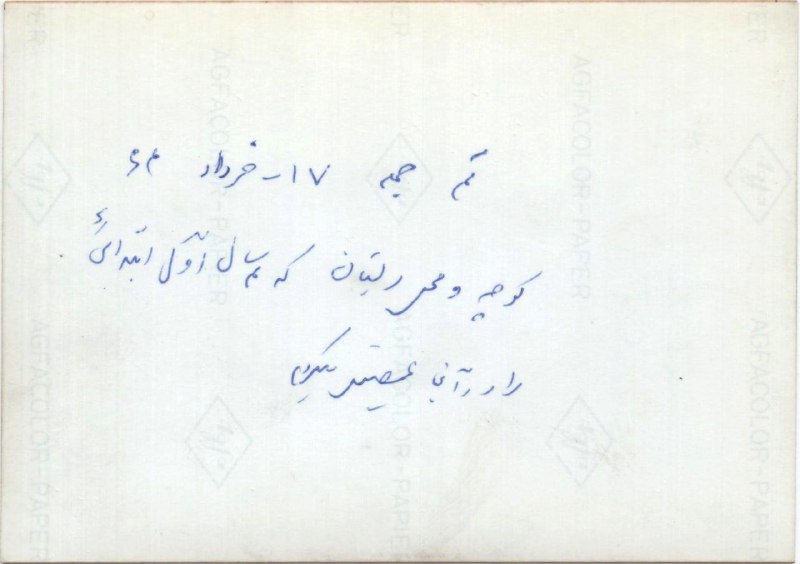 قم جمعه ۱۷- خرداد ۶۴
کوچه و محل دبستان که سال اوّل ابتدائی
را در آنجا تحصیل میکردم
AGFACOLOR-PAPER